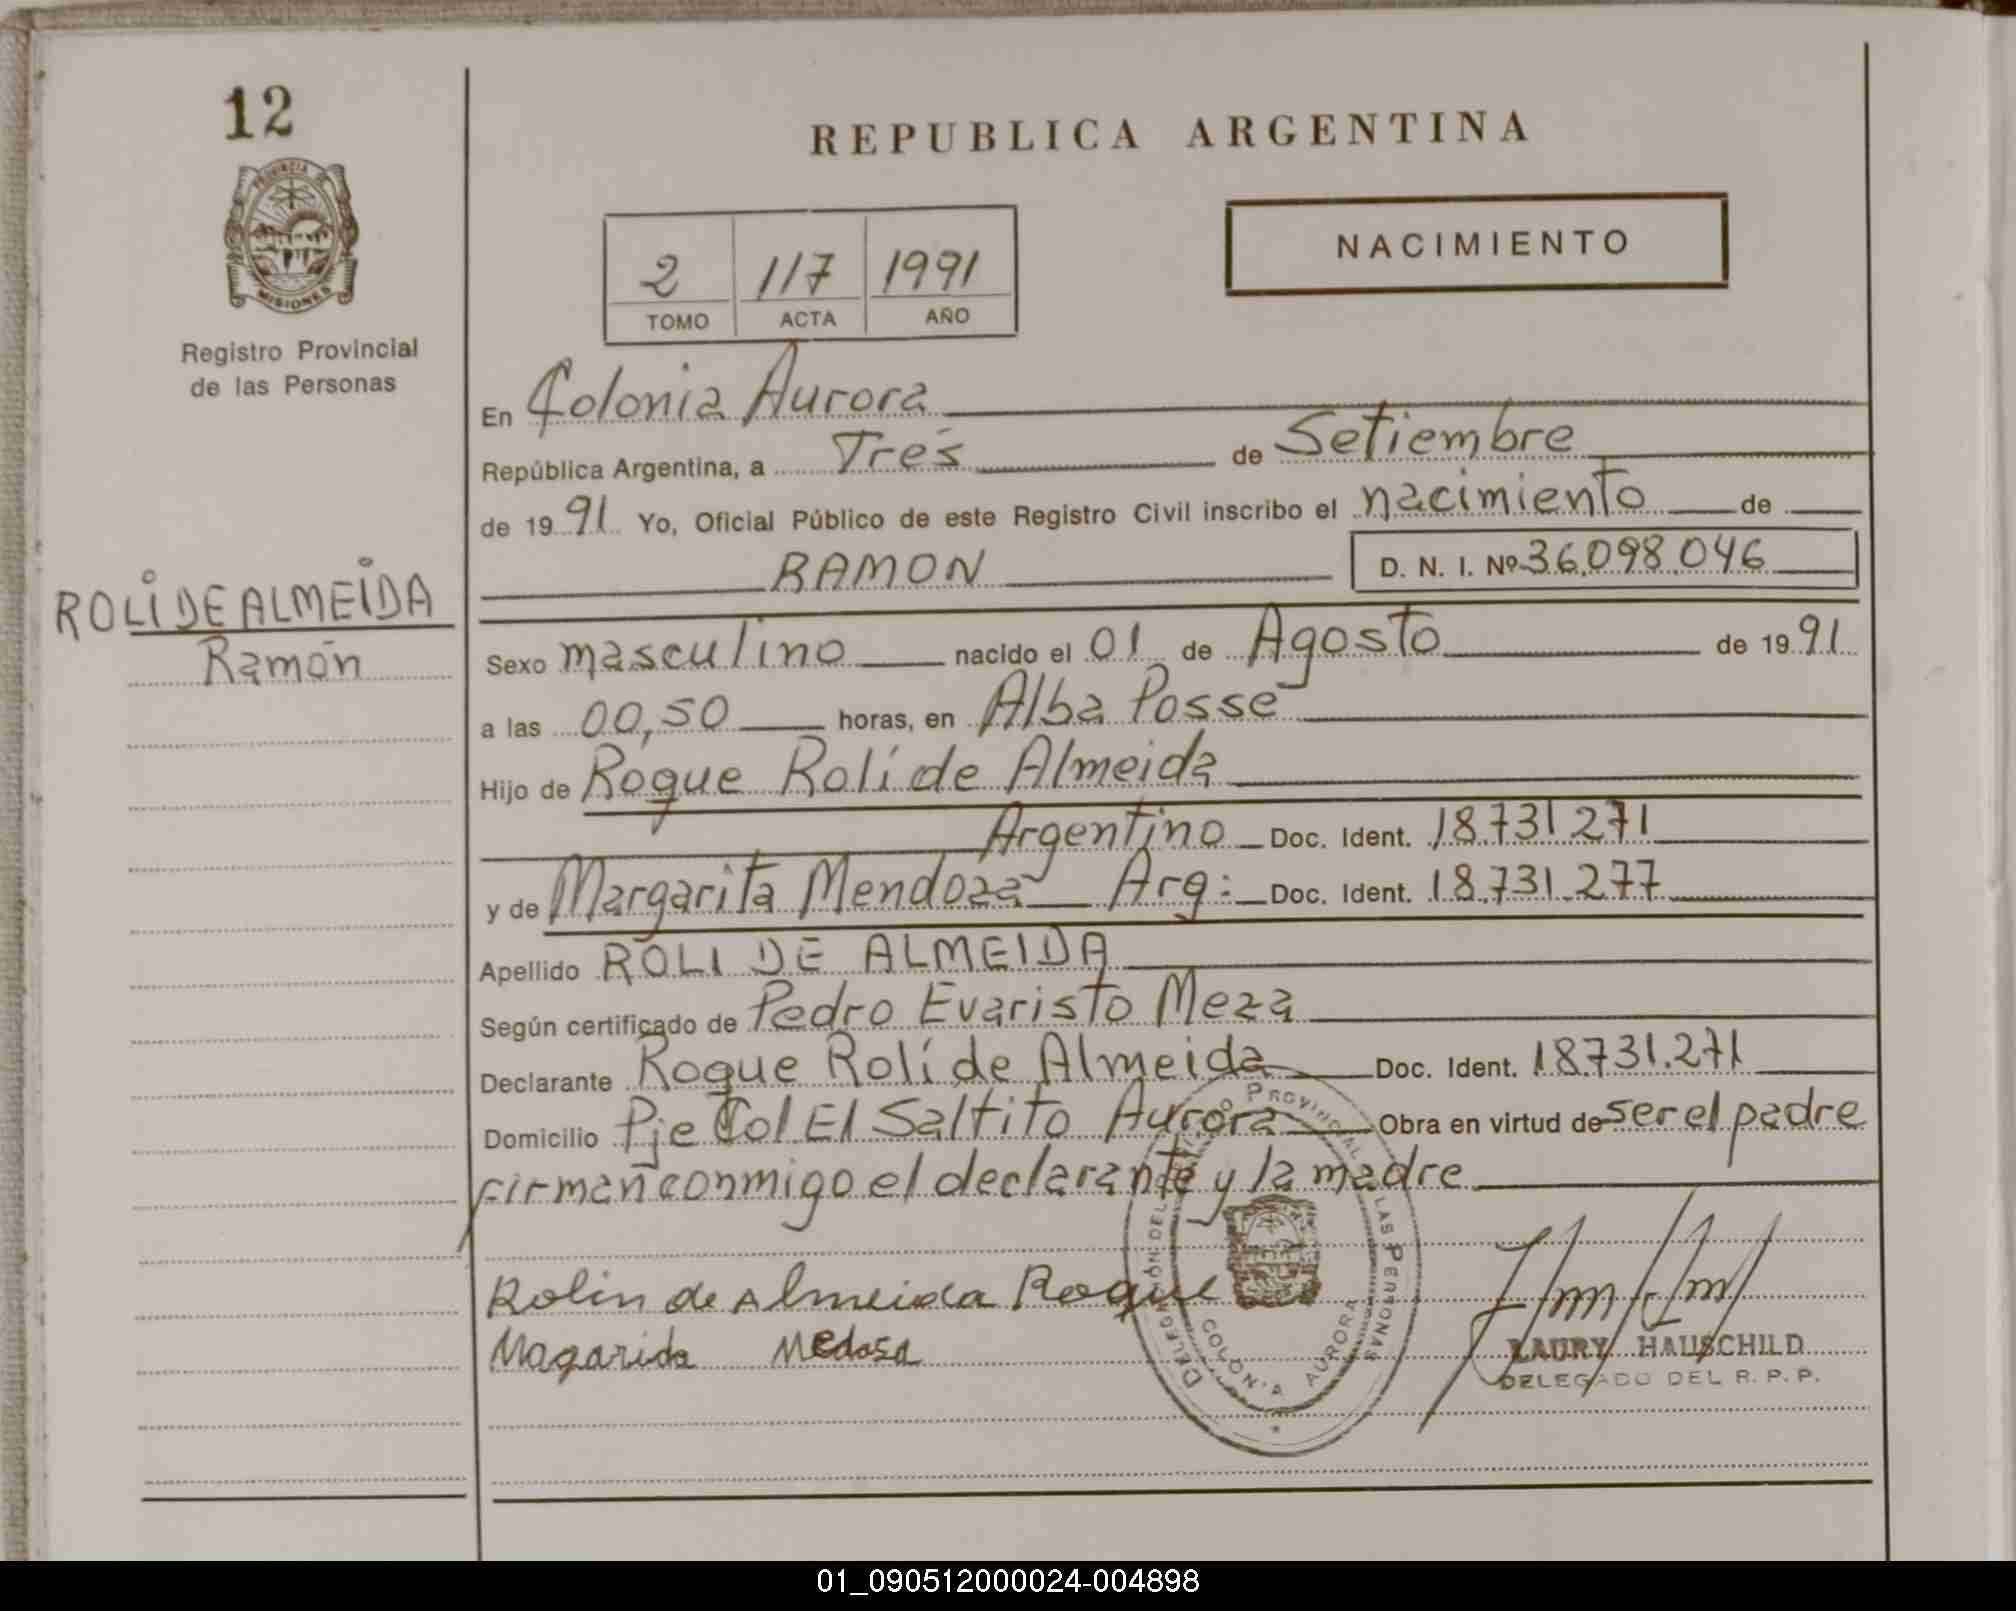 12
PROVINCIA DE
MISIONES
Registro Provincial
de las Personas
ROLI DE ALMEIDA
Ramón
REPUBLICA ARGENTINA
2 117 1991
TOMO ACTA AÑO
NACIMIENTO
En Colonia Aurora
República Argentina, a Tres de Setiembre
de 1991 Yo, Oficial Público de este Registro Civil inscribo el nacimiento de
RAMON D. N. I. Nº 36.098.046
Sexo masculino nacido el 01 de Agosto de 1991
a las 00,50 horas, en Alba Posse
Hijo de Roque Rolí de Almeida
Argentino Doc. Ident. 18.731.271
y de Margarita Mendoza Arg: Doc. Ident. 18.731.277
Apellido ROLI DE ALMEIDA
Según certificado de Pedro Evaristo Meza
Declarante Roque Rolí de Almeida Doc. Ident. 18.731.271
Domicilio Pje Col El Saltito Aurora Obra en virtud de ser el padre
firman conmigo el declarante y la madre
Rolin de Almeida Roque
Magarida Medosa
DELEGACIÓN DEL REGISTRO PROVINCIAL DE LAS PERSONAS
COLONIA AURORA
LAURY HAUSCHILD
DELEGADO DEL R. P. P.
01_090512000024-004898